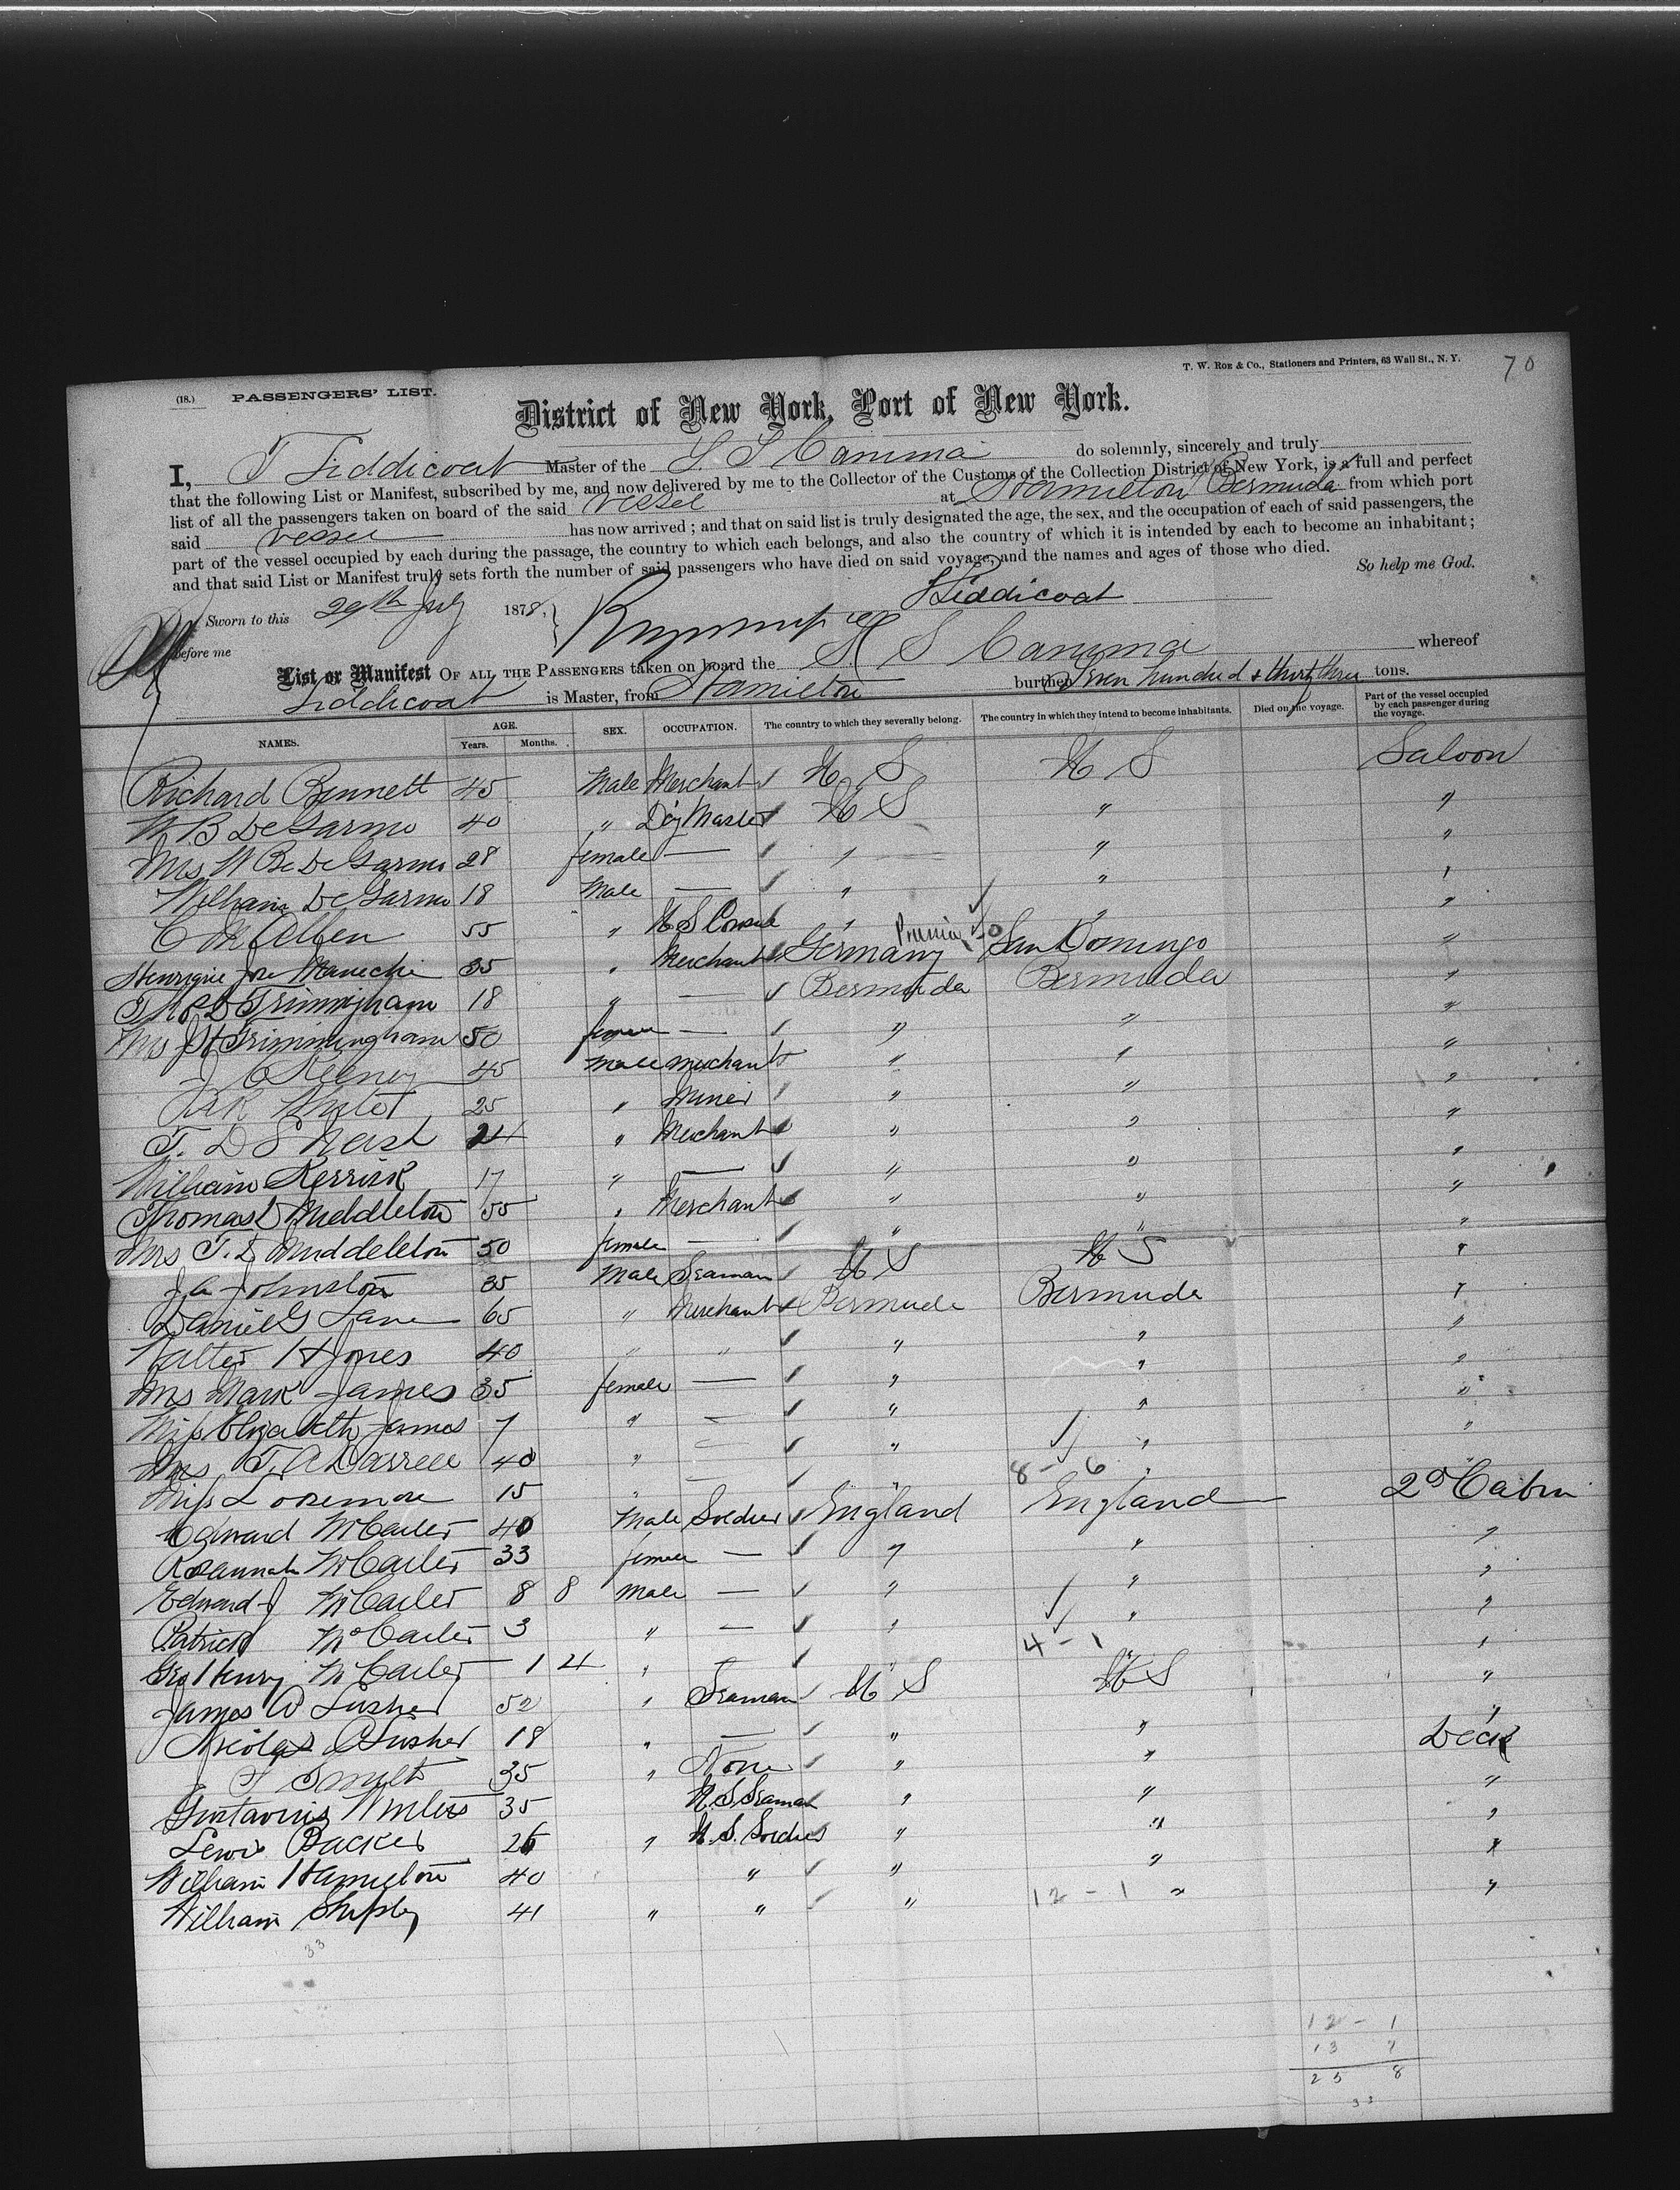 T. W. ROE & CO., Stationers and Printers, 63 Wall St., N. Y. 70
(18.) PASSENGERS' LIST.
District of New York, Port of New York.
I, T Liddicoat Master of the S. S Canima do solemnly, sincerely and truly
that the following List or Manifest, subscribed by me, and now delivered by me to the Collector of the Customs of the Collection District of New York, is a full and perfect
list of all the passengers taken on board of the said vessel at Hamilton Bermuda from which port
said vessel has now arrived; and that on said list is truly designated the age, the sex, and the occupation of each of said passengers, the
part of the vessel occupied by each during the passage, the country to which each belongs, and also the country of which it is intended by each to become an inhabitant;
and that said List or Manifest truly sets forth the number of said passengers who have died on said voyage, and the names and ages of those who died.
So help me God.
Sworn to this 29th July 1878, Liddicoat
before me
List or Manifest OF ALL THE PASSENGERS taken on board the S S Canima whereof
Liddicoat is Master, from Hamilton burthen Seven hundred & thirty three tons.
NAMES. AGE. Years. Months. SEX. OCCUPATION. The country to which they severally belong. The country in which they intend to become inhabitants. Died on the voyage. Part of the vessel occupied by each passenger during the voyage.
Richard Bennett 45 Male Merchant U S U S Saloon
W B DeGarmo 40 " U S " "
Mrs W B DeGarmo 28 female — " " "
William DeGarmo 18 Male — " " "
C M Allen 55 " U S Consul " " "
35 " Merchant Germany Prussia San Domingo "
Thos D Trimingham 18 " — Bermuda Bermuda "
Mrs J H Trimmingham 50 female — " " "
J 45 male merchant " " "
25 " Miner " " "
T. D S 24 " Merchant " " "
William Kerrick 17 " — " " "
Thomas D Middleton 55 " Merchant " " "
Mrs T. D Middleton 50 female — " " "
J A Johnston 35 Male Seaman U S U S "
Daniel G Lane 65 " Merchant Bermuda Bermuda "
Walter H Jones 40 " " " " "
Mrs Mark James 35 female — " " "
Miss Elizabeth James 7 " — " " "
Mrs T. A Darrell 40 " — " " "
8 - 6
Miss Loosemore 15 " — " " "
Edward McCarler 40 Male Soldier England England 2d Cabin
Rosannah McCarler 33 female — " " "
Edward J McCarler 8 8 Male — " " "
Patrick McCarler 3 " — " " "
4 - 1
Geo Henry McCarler 1 4 " — " " "
James W Lusher 52 " Seaman U S U S "
Nicolas Lusher 18 " — " " "
T Smith 35 " None " " Deck
Gustavius 35 U. S. Seaman " " "
Lewis Backer 26 " U. S. Soldier " " "
William Hamilton 40 " " " "
William Shipley 41 " " " 12 - 1 " "
33
12 - 1
13 7
25 8
33